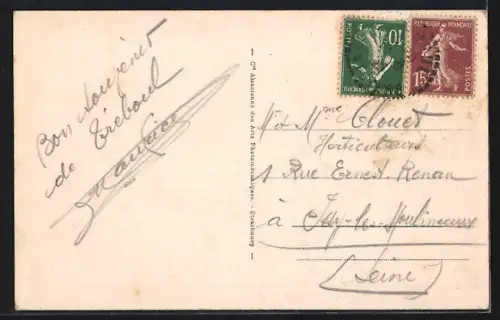 Bon souvenir
de Tréboul
Cie Alsacienne des Arts Photomécaniques - Strasbourg
10
POSTES
REPUBLIQUE FRANÇAISE
15c
POSTES
M. et Mme Clouet
Horticulteurs
1 Rue Ernest Renan
à Issy-les-Moulineaux
(Seine)